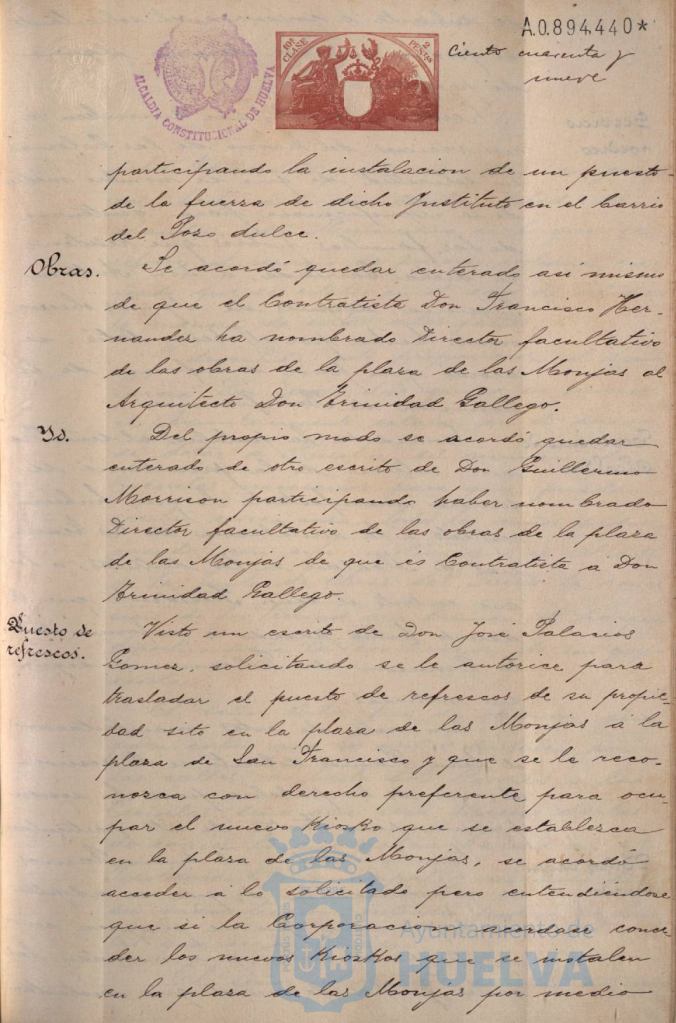 A.0.894.440*
10ª CLASE
2 PESETAS
ALCALDIA CONSTITUCIONAL DE HUELVA
Ciento cuarenta y
nueve
participando la instalacion de un puesto
de la fuerza de dicho Instituto en el barrio
del Pozo dulce.
Obras.
Se acordó quedar enterado asi mismo
de que el Contratista Don Francisco Her-
nandez ha nombrado Director facultativo
de las obras de la plaza de las Monjas al
Arquitecto Don Trinidad Gallego.
Yd.
Del propio modo se acordó quedar
enterado de otro escrito de Don Guillermo
Morrison participando haber nombrado
Director facultativo de las obras de la plaza
de las Monjas de que és Contratista á Don
Trinidad Gallego.
Puesto de
refrescos.
Visto un escrito de Don José Palacios
Gomez, solicitando se le autorice para
trasladar el puesto de refrescos de su propie-
dad sito en la plaza de las Monjas á la
plaza de San Francisco y que se le reco-
nozca con derecho preferente para ocu-
par el nuevo Kiosko que se establezca
en la plaza de las Monjas, se acordó
acceder á lo solicitado pero entendiéndose
que si la Corporacion acordase conce-
der los nuevos Kioskos que se instalen
en la plaza de las Monjas por medio
Ayuntamiento de
HUELVA